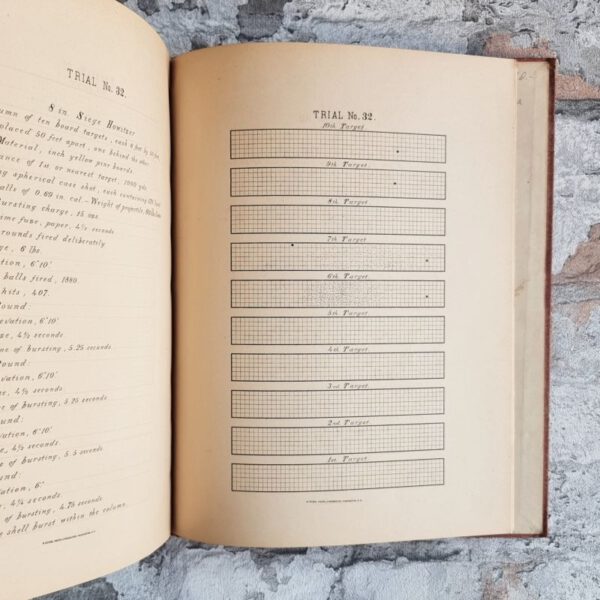 TRIAL No. 32.
8 in. Siege Howitzer
column of ten board targets, each 9 feet by
placed 50 feet apart, one behind the other
Material, inch yellow pine boards.
ance of 1st or nearest target, 1000 yds
ng spherical case shot, each containing
alls of 0.69 in. cal. - Weight of projectile,
ursting charge, 15 ozs.
ime fuze, paper, 4½ seconds
rounds fired deliberately
ge, 6 lbs.
ation, 6°10'
balls fired, 1880
hits, 407.
ound:
evation, 6°10'
ze, 4½ seconds.
me of bursting, 5.25 seconds.
ound:
vation, 6°10'
e, 4½ seconds.
e of bursting, 5.25 seconds.
und:
vation, 6°10'
e, 4½ seconds.
of bursting, 5.5 seconds
und:
ation, 6°
, 4¼ seconds.
of bursting, 4.75 seconds.
shell burst within the column.
TRIAL No. 32.
10th. Target
9th. Target
8th. Target
7th Target
6th. Target
5th. Target
4th. Target
3rd. Target
2nd. Target
1st. Target